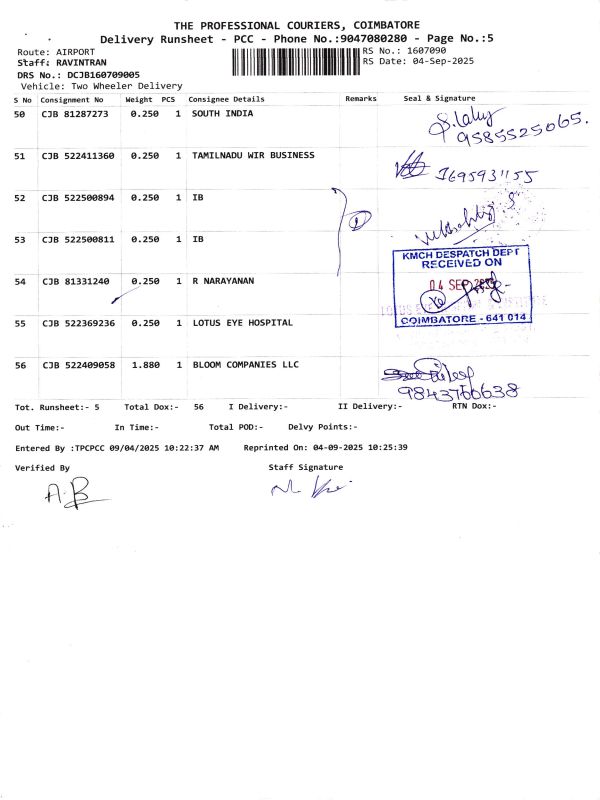 THE PROFESSIONAL COURIERS, COIMBATORE
Delivery Runsheet - PCC - Phone No.:9047080280 - Page No.:5
Route: AIRPORT
RS No.: 1607090
Staff: RAVINTRAN
RS Date: 04-Sep-2025
DRS No.: DCJB160709005
Vehicle: Two Wheeler Delivery
S No Consignment No Weight PCS Consignee Details Remarks Seal & Signature
50 CJB 81287273 0.250 1 SOUTH INDIA
9585525065.
51 CJB 522411360 0.250 1 TAMILNADU WIR BUSINESS
7695931155
52 CJB 522500894 0.250 1 IB
53 CJB 522500811 0.250 1 IB
KMCH DESPATCH DEPT
RECEIVED ON
54 CJB 81331240 0.250 1 R NARAYANAN
04 SEP 2025
COIMBATORE - 641 014
55 CJB 522369236 0.250 1 LOTUS EYE HOSPITAL
56 CJB 522409058 1.880 1 BLOOM COMPANIES LLC
9843766638
Tot. Runsheet:- 5 Total Dox:- 56 I Delivery:- II Delivery:- RTN Dox:-
Out Time:- In Time:- Total POD:- Delvy Points:-
Entered By :TPCPCC 09/04/2025 10:22:37 AM Reprinted On: 04-09-2025 10:25:39
Verified By Staff Signature
A.B